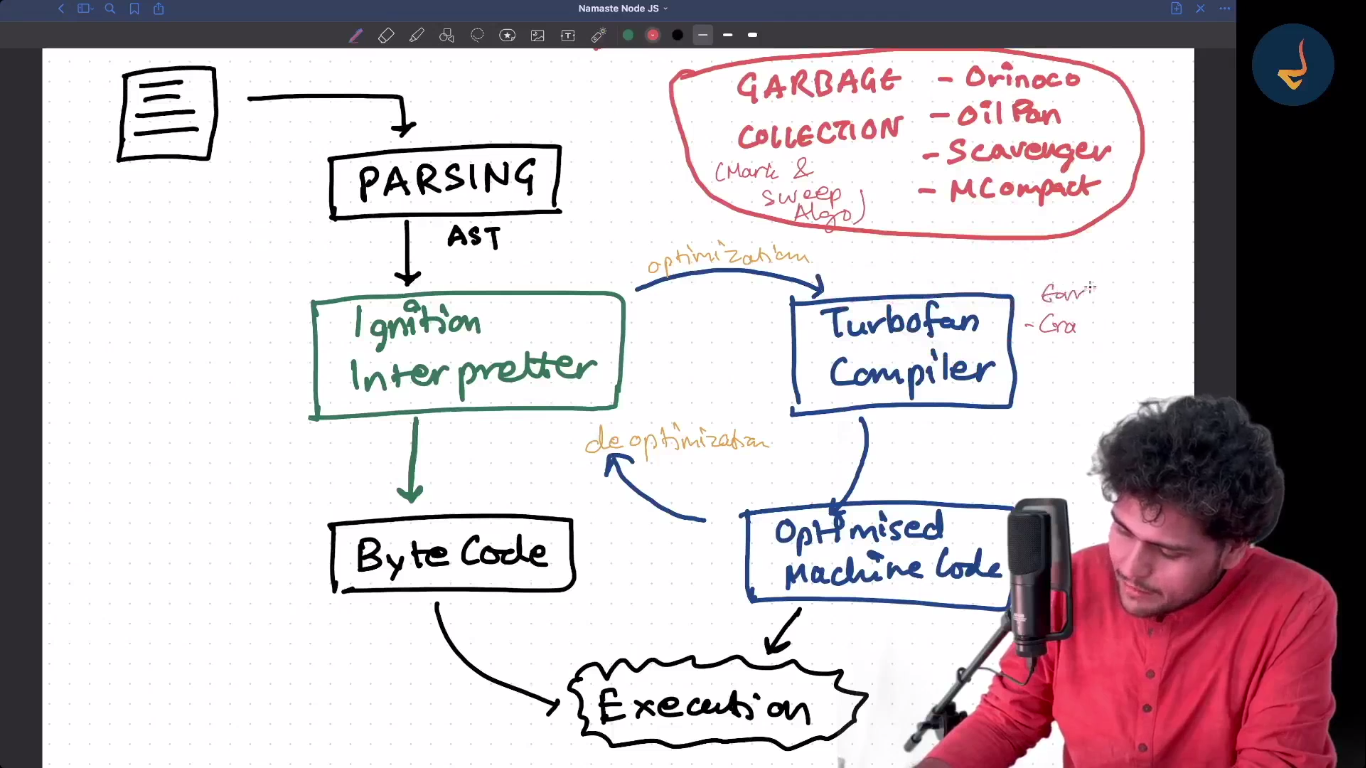 Namaste Node JS
GARBAGE
COLLECTION
(Mark &
Sweep
Algo)
- Orinoco
- Oil Pan
- Scavenger
- MCompact
PARSING
AST
optimization
Ignition
Interpretter
Turbofan
Compiler
- Cra
deoptimization
Byte Code
Optimised
Machine Code
Execution